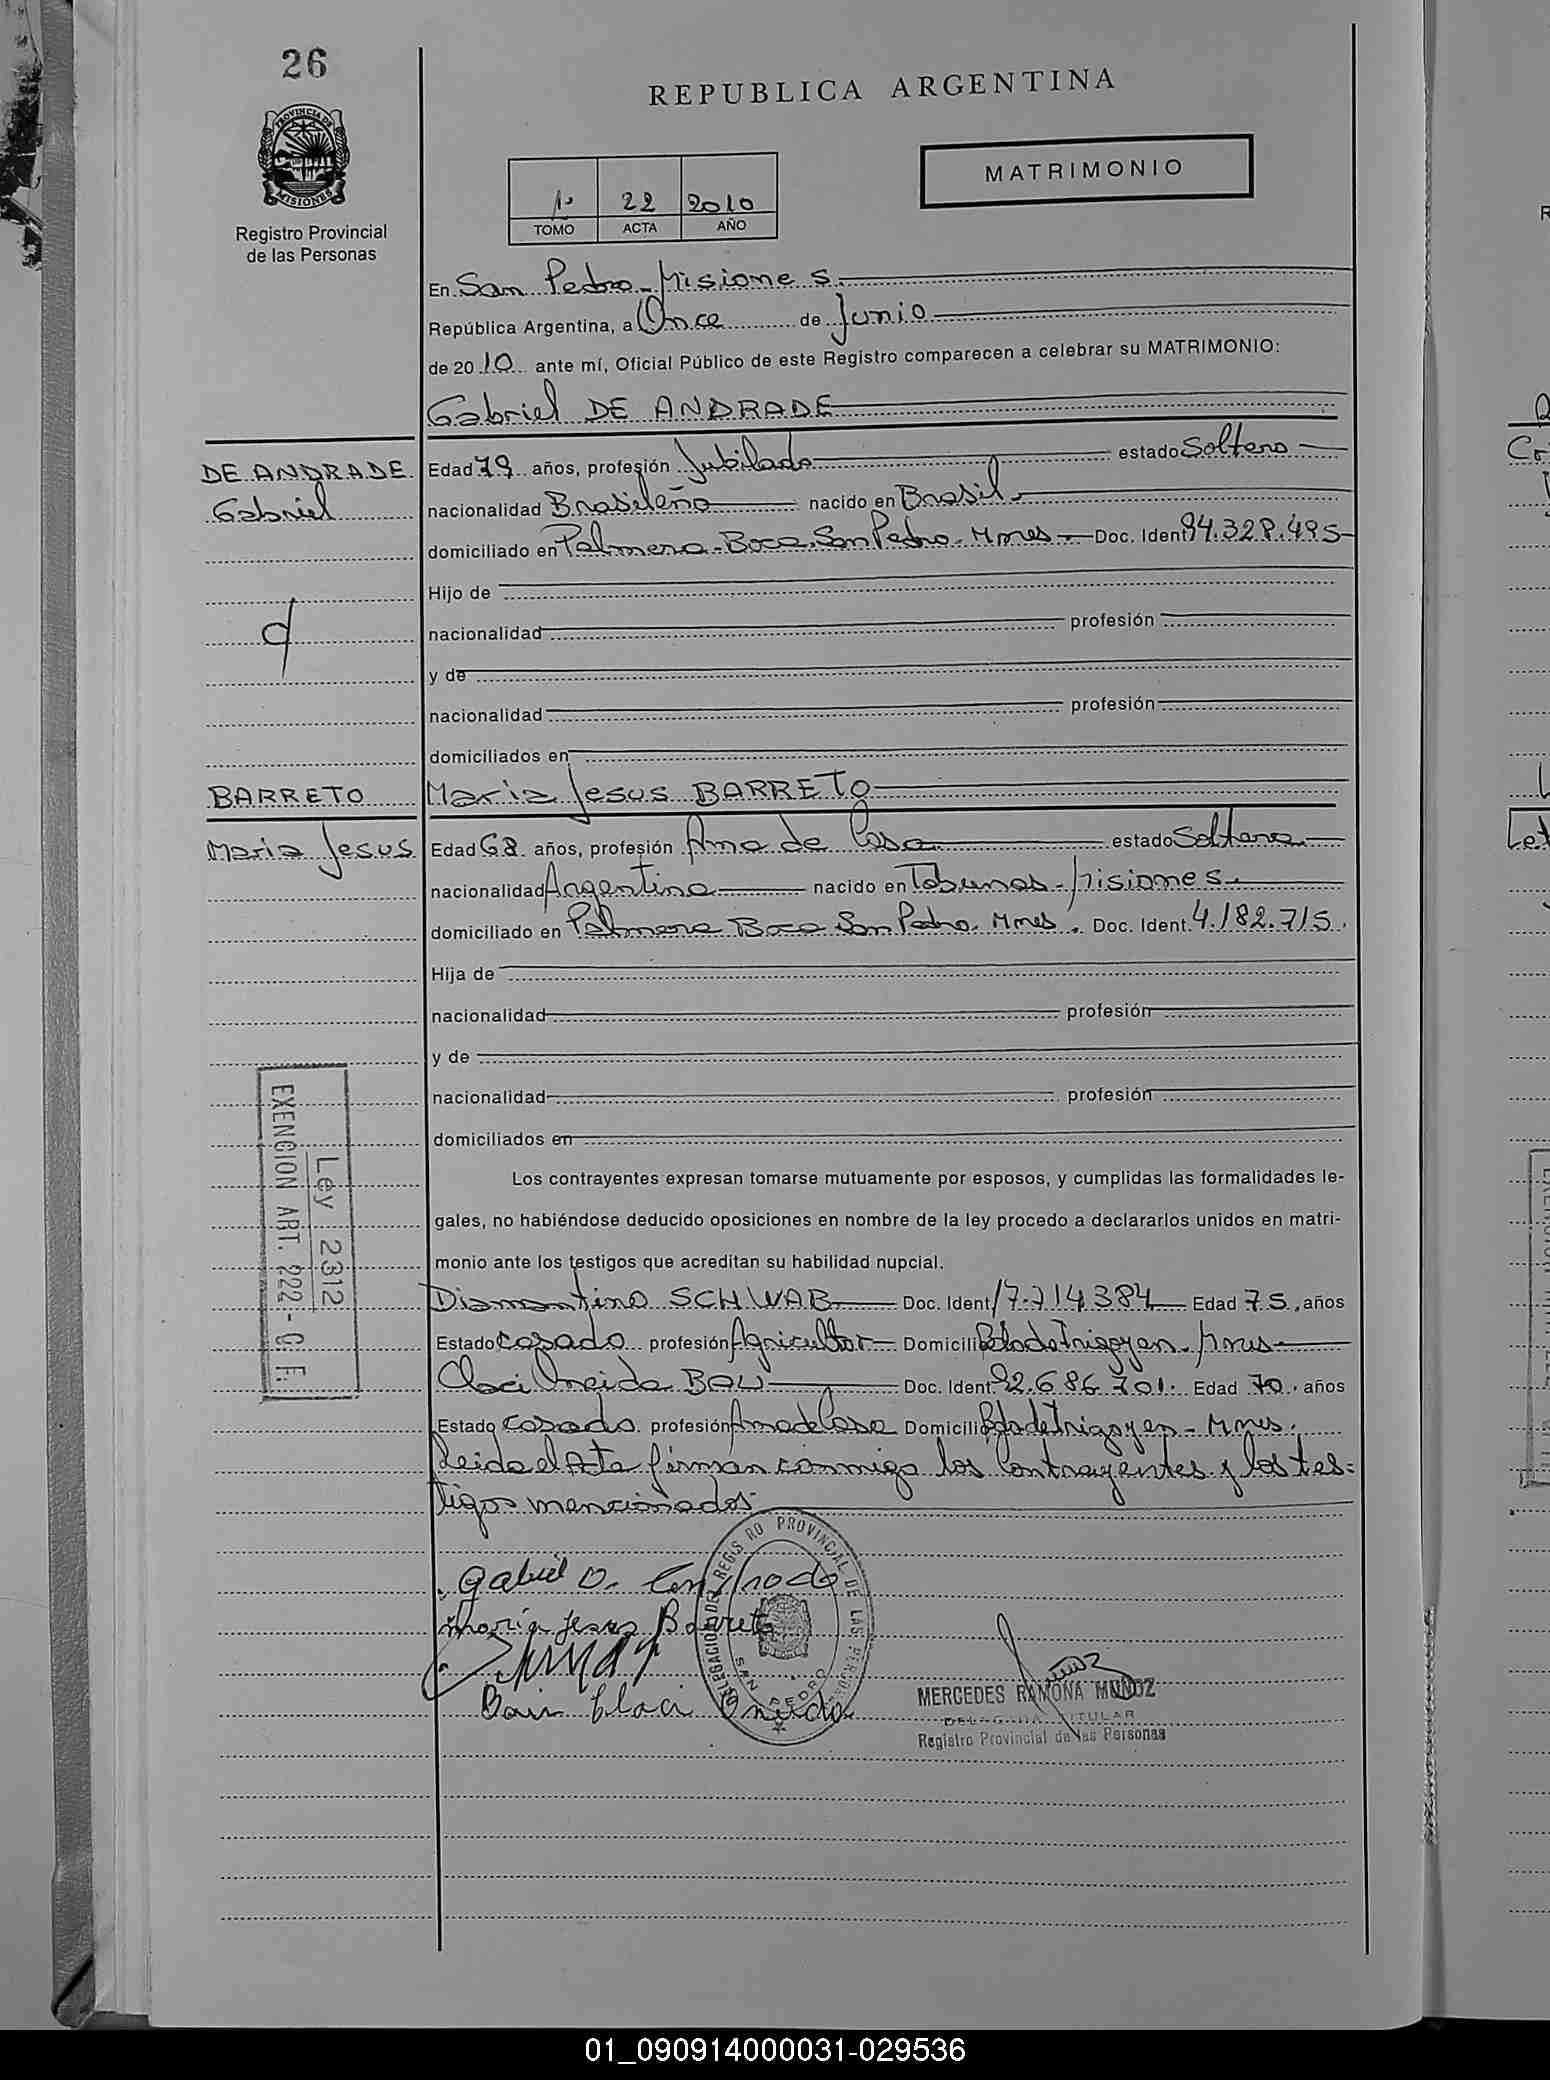 26
REPUBLICA ARGENTINA
PROVINCIA DE
MISIONES
Registro Provincial
de las Personas
1º 22 2010
TOMO ACTA AÑO
MATRIMONIO
En San Pedro - Misiones.
República Argentina, a Once de Junio
de 2010 ante mí, Oficial Público de este Registro comparecen a celebrar su MATRIMONIO:
Gabriel DE ANDRADE
DE ANDRADE
Gabriel
Edad 79 años, profesión Jubilado estado Soltero
nacionalidad Brasileño nacido en Brasil.
domiciliado en Palmera-Boca. San Pedro - Mnes - Doc. Ident 94.328.495
Hijo de
nacionalidad profesión
y de
nacionalidad profesión
domiciliados en
BARRETO
Maria Jesus
Maria Jesus BARRETO
Edad 68 años, profesión Ama de Casa estado Soltera
nacionalidad Argentina nacido en Tobunas - Misiones.
domiciliado en Palmera Boca San Pedro. Mnes. Doc. Ident. 4.182.715.
Hija de
nacionalidad profesión
y de
nacionalidad profesión
domiciliados en
Ley 2312
EXENCION ART. 222 - C. F.
Los contrayentes expresan tomarse mutuamente por esposos, y cumplidas las formalidades le-
gales, no habiéndose deducido oposiciones en nombre de la ley procedo a declararlos unidos en matri-
monio ante los testigos que acreditan su habilidad nupcial.
Diamantino SCHWAB Doc. Ident 17.714.384 Edad 75, años
Estado casado profesión Agricultor Domicili Bdo de Irigoyen. Mnes
Claci Oneida BAU Doc. Ident. 92.686.701. Edad 70. años
Estado casada profesión Ama de Casa Domicili Bdo de Irigoyen - Mnes.
Leida el Acta firman conmigo los Contrayentes y los tes-
tigos mencionados
Gabriel D.
Maria Jesus Barreto
Claci Oneida
DELEGACION DEL REGISTRO PROVINCIAL DE LAS PERSONAS
SAN PEDRO
MERCEDES RAMONA MUÑOZ
DELEGADA TITULAR
Registro Provincial de las Personas
01_090914000031-029536